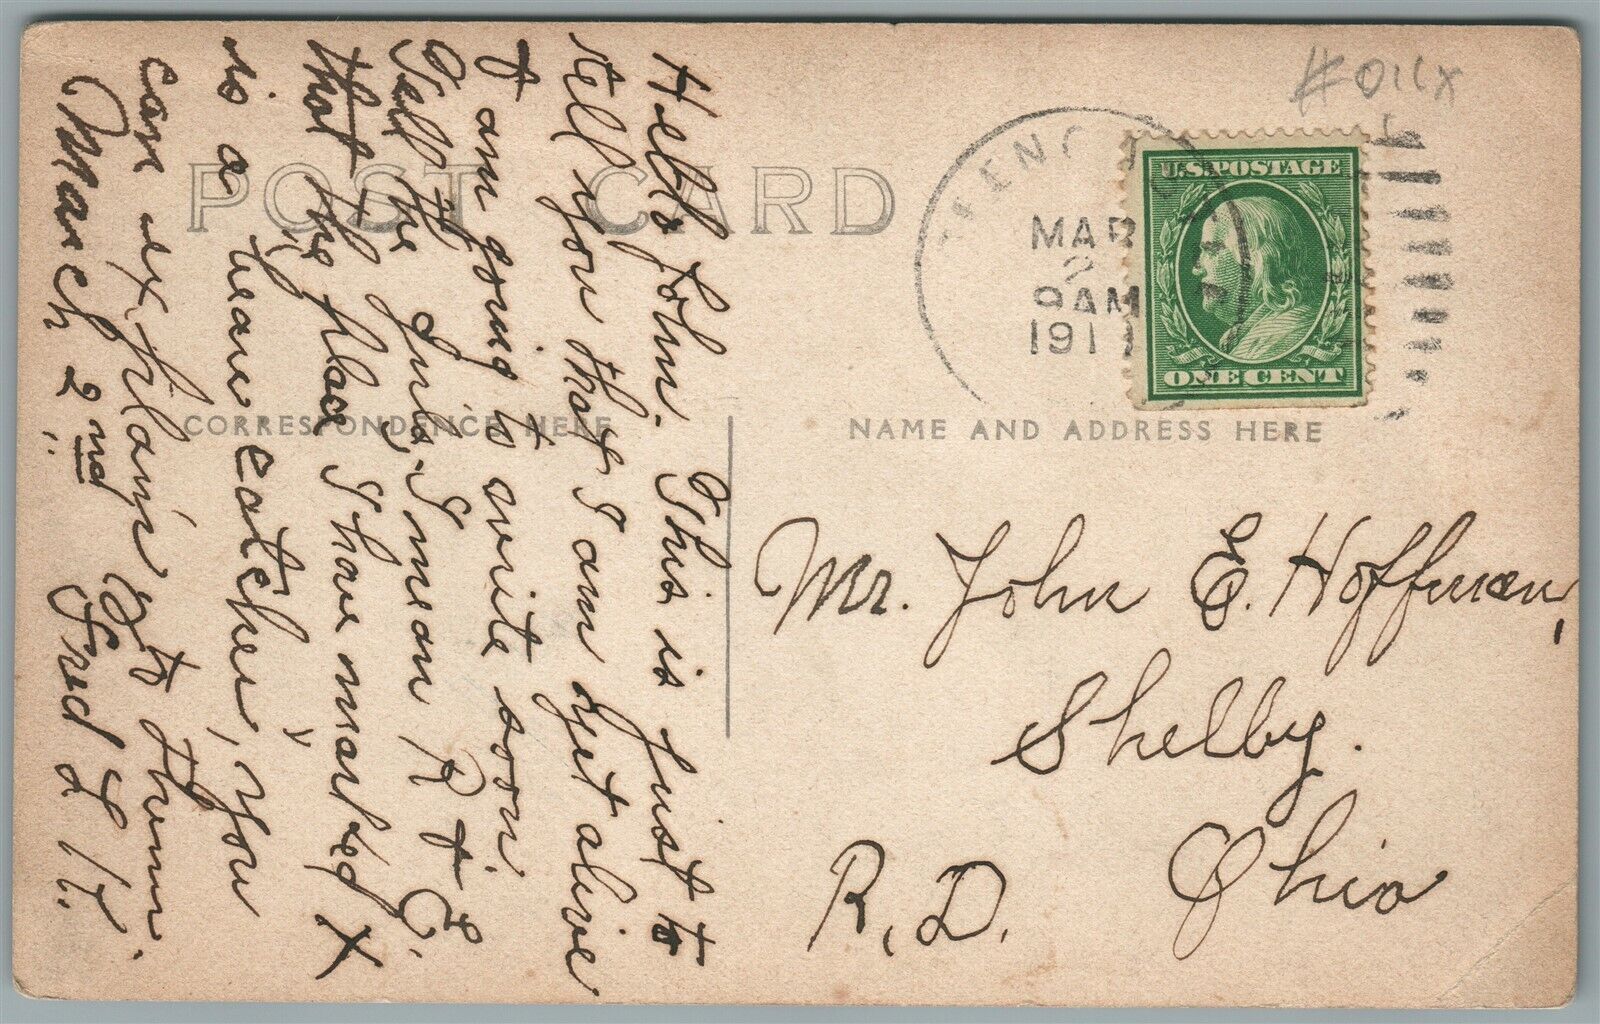 POST CARD
CORRESPONDENCE HERE
NAME AND ADDRESS HERE
Hello John. This is just to
tell you that I am yet alive
& am going to write soon.
Tell the girls, I mean R & E.
that the place I have marked X
is a "beau catcher", you
can explain it to them.
March 2nd. Fred L K.
MAR
2
9 AM
1911
U.S. POSTAGE
ONE CENT
Mr. John E. Hoffman,
Shelby.
Ohio
R. D.